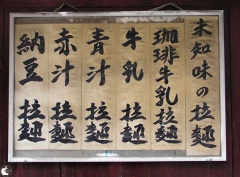 未知味の拉麺
珈琲牛乳拉麺
牛乳 拉麺
青汁 拉麺
赤汁 拉麺
納豆 拉麺